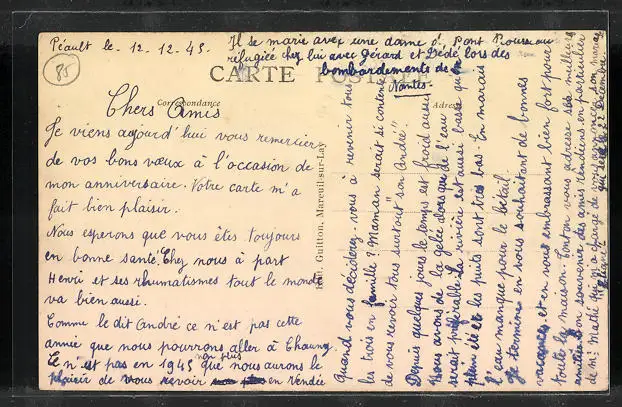 Péault le - 12-12-45.
85
CARTE POSTALE
Correspondance
Adresse
Chers Amis
Je viens aujourd'hui vous remercier
de vos bons vœux à l'occasion de
mon anniversaire. Votre carte m'a
fait bien plaisir.
Nous esperons que vous êtes toujours
en bonne santé. Chez nous à part
Henri et ses rhumatismes tout le monde
va bien aussi.
Comme le dit André ce n'est pas cette
année que nous pourrons aller à Chauny
Ce n'est pas en 1945 non plus que nous aurons le
plaisir de vous revoir en Vendée
Edit. Guitton, Mareuil-sur-Lay
Quand vous déciderez-vous à revenir tous
les trois en famille? Maman serait si contente
de vous revoir tous surtout "son André"
Depuis quelques jours le temps est froid aussi
nous avons de la gelée alors que de l'eau
serait préférable la rivière est aussi basse qu'en
plein été et les puits sont très bas. En marais
l'eau manque pour le bétail.
Je termine en vous souhaitant de bonnes
vacances et en vous embrassant bien fort pour
toute la maison. Tonton vous adresse ses meilleures
amitiés son souvenir des amis Vendéens en particulier
de Mr Mathé qui m'a chargé de vous annoncer son mariage
qui sera le 22 Décembre.
Il se marie avec une dame de Pont Rousseau
réfugiée chez lui avec Gérard et Dédé lors des
bombardements de
Nantes.